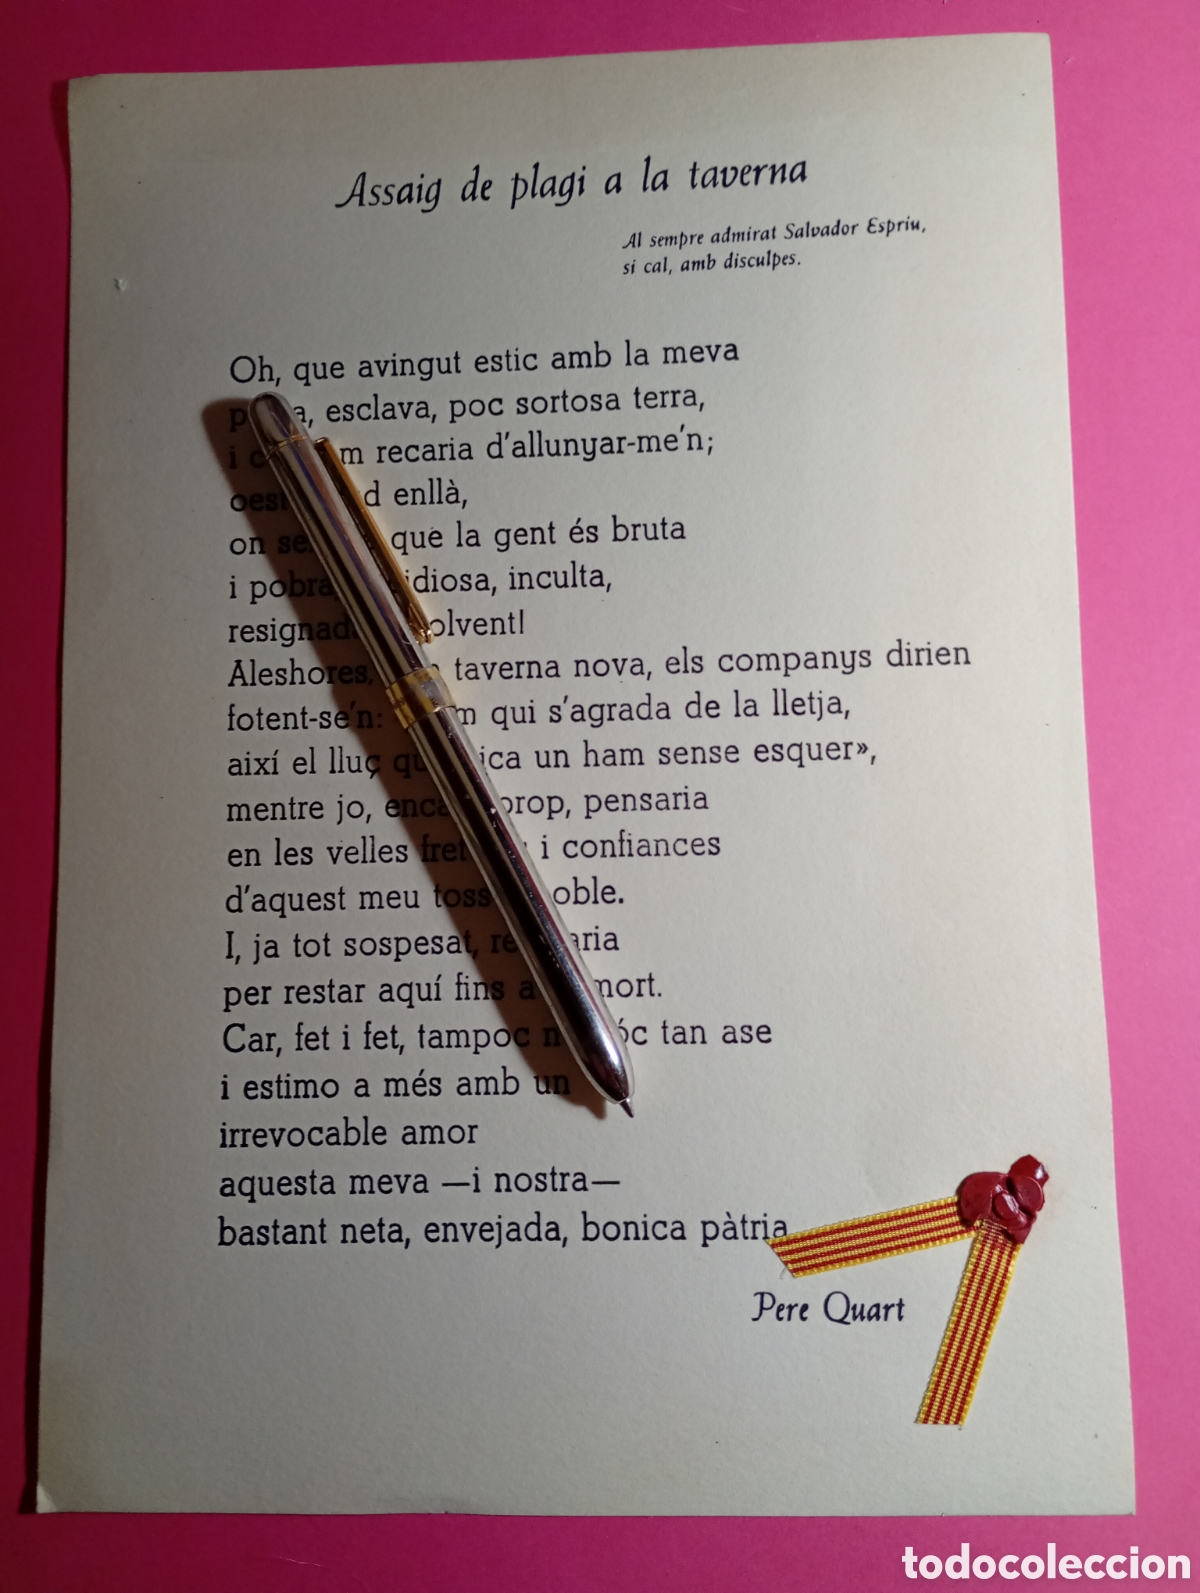 Assaig de plagi a la taverna
Al sempre admirat Salvador Espriu,
si cal, amb disculpes.
Oh, que avingut estic amb la meva
esclava, poc sortosa terra,
i recaria d'allunyar-me'n;
enllà,
on que la gent és bruta
i inculta,
Aleshores, taverna nova, els companys dirien
fotent-se'n: qui s'agrada de la lletja,
així el lluç un ham sense esquer»,
mentre jo, prop, pensaria
en les velles i confiances
d'aquest meu
I, ja tot sospesat,
per restar aquí fins a mort.
Car, fet i fet, tampoc tan ase
i estimo a més amb un
irrevocable amor
aquesta meva —i nostra—
bastant neta, envejada, bonica pàtria
Pere Quart
todocoleccion